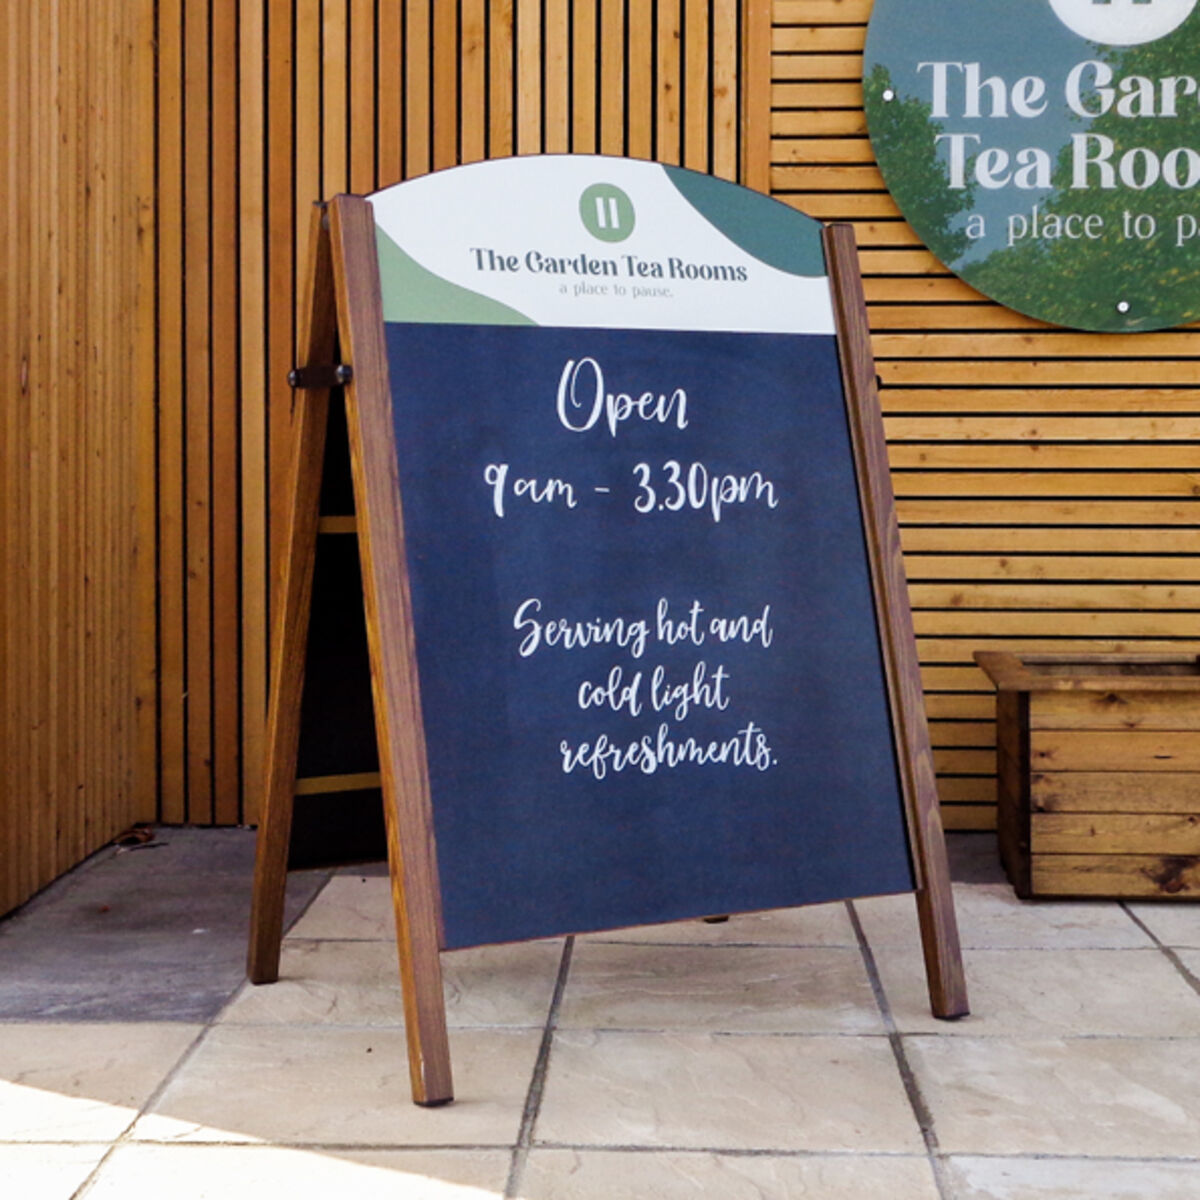 The Garden Tea Rooms
a place to pause.
Open
9am - 3.30pm
Serving hot and
cold light
refreshments.
The Gar
Tea Roo
a place to pa